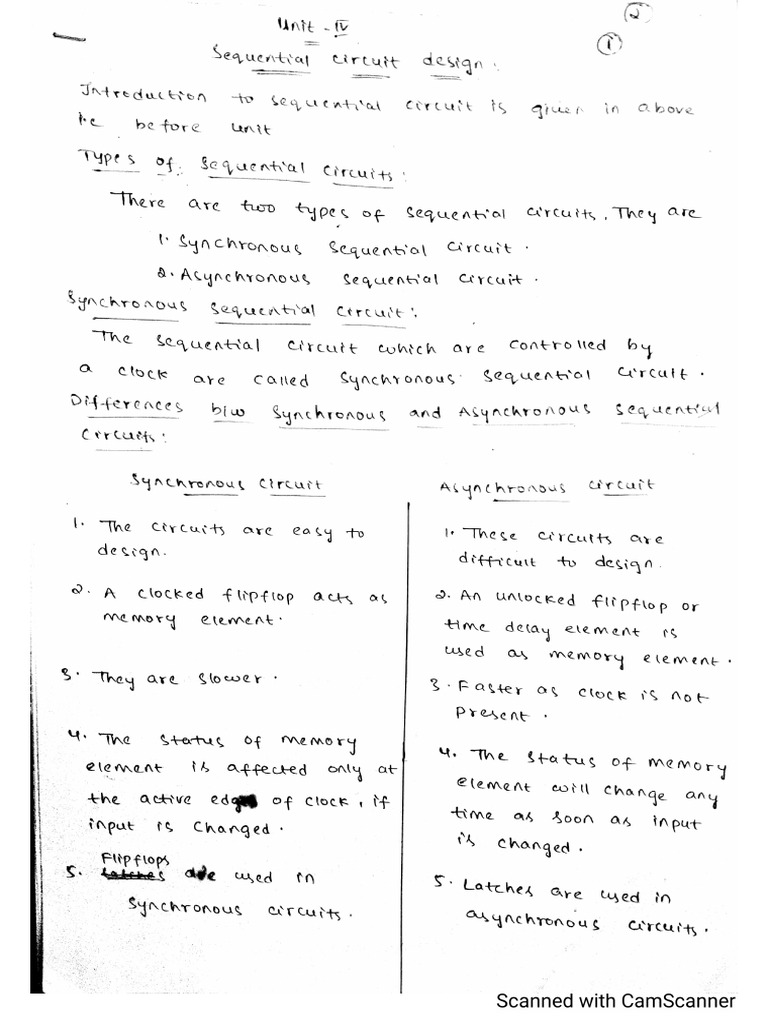 ②
①
Unit - IV
Sequential circuit design:
Introduction to sequential circuit is given in above
i.e before unit
Types of sequential circuits:
There are two types of sequential circuits. They are
1. Synchronous sequential circuit.
2. Asynchronous sequential circuit.
Synchronous sequential circuit:
The sequential circuit which are controlled by
a clock are called synchronous sequential circuit.
Differences b/w synchronous and Asynchronous sequential
circuits:
Synchronous circuit
1. The circuits are easy to
design.
2. A clocked flipflop acts as
memory element.
3. They are slower.
4. The status of memory
element is affected only at
the active edge of clock, if
input is changed.
5. Flipflops are used in
synchronous circuits.
Asynchronous circuit
1. These circuits are
difficult to design.
2. An unlocked flipflop or
time delay element is
used as memory element.
3. Faster as clock is not
present.
4. The status of memory
element will change any
time as soon as input
is changed.
5. Latches are used in
asynchronous circuits.
Scanned with CamScanner